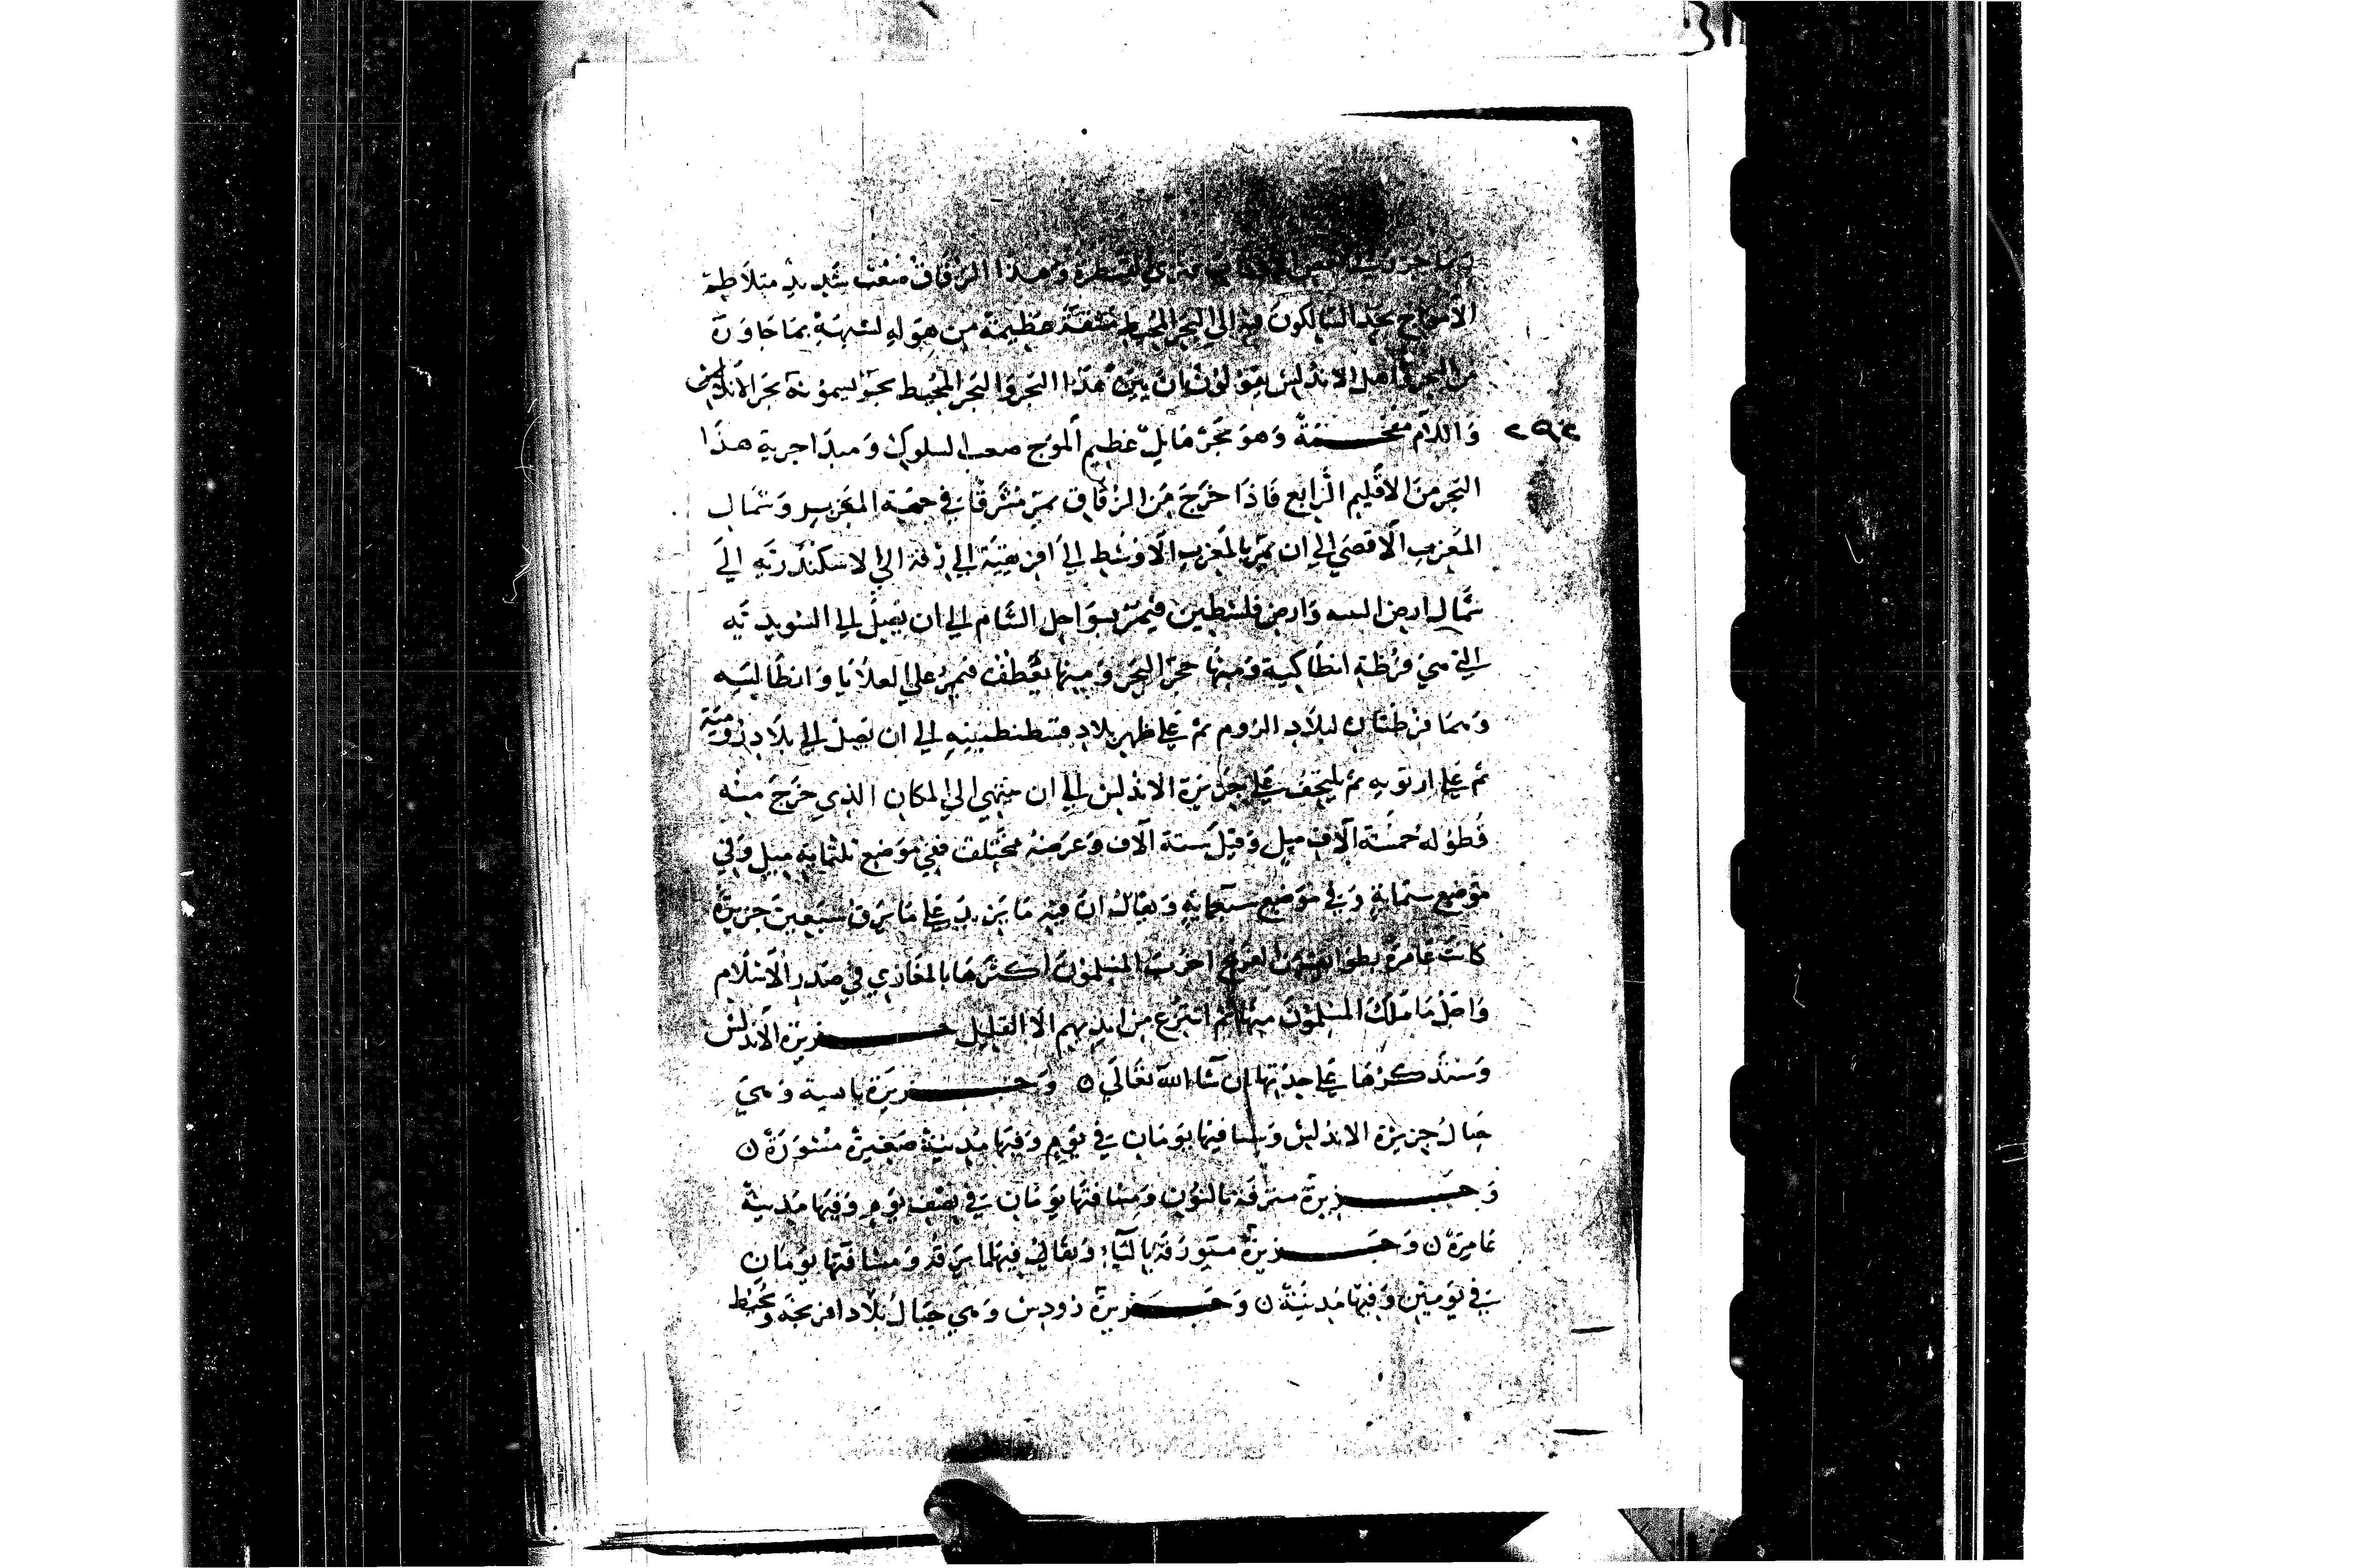 وهذا الزقاق صعب شديد متلاطم
الأمواج يجد السالكون فيه إلى البحر المحيط مشقة عظيمة من هوله لشبهه بما جاوره
من البحر وأهل الاندلس يقولون ان بين هذا البحر والبحر المحيط بحر يسمونه بحر الاندلس
واللام مفخمة وهو بحر هايل عظيم الموج صعب السلوك ومبدا جرية هذا
٢٩٤
البحر من الاقليم الرابع فاذا خرج من الزقاق يمر مشرقا في جهة المغرب وشمال
المغرب الاقصى الي ان يمر بالمغرب الاوسط الي افريقية الي برقة الي الاسكندرية الي
شمال ارض التيه وارض فلسطين فيمر بسواحل الشام الي ان يصل الي السويدية
التي هي فرظة انطاكية ومنها حجز البحر ومنها يعطف فيمر علي العلايا وانطاليه
وهما فرظتان لبلاد الروم ثم علي ظهر بلاد قسطنطينيه الي ان يصل الي بلاد رومية
ثم علي ثم يلتحف علي جزيرة الاندلس الي ان ينتهي الي المكان الذي خرج منه
فطوله خمسة آلاف ميل وقيل ستة آلاف وعرضه مختلف ففي موضع ثلثماية ميل وفي
موضع ستماية وفي موضع سبعماية ويقال ان فيه ما يزيد علي ماية وسبعين جزيرة
كانت عامرة بطوايف من الفرنج اخرب المسلمون اكثرها بالمغازي في صدر الاسلام
واجل ما ملك المسلمون منها ثم انتزع من ايديهم الا القليل جزيرة الاندلس
وسنذكرها علي حدتها ان شا الله تعالي ن وجزيرة يابسة وهي
حبال جزيرة الاندلس ومسافتها يومان في يوم وفيها مدينة صغيرة مسورة ن
وجزيرة منرقة بالنون ومسافتها يومان في نصف يوم وفيها مدينة
عامرة ن وجزيرة ميورقة باليآء ويقال فيها مايرقة ومسافتها يومان
في يومين وفيها مدينة ن وجزيرة رودس وهي حبال بلاد افرنجه ومحيط